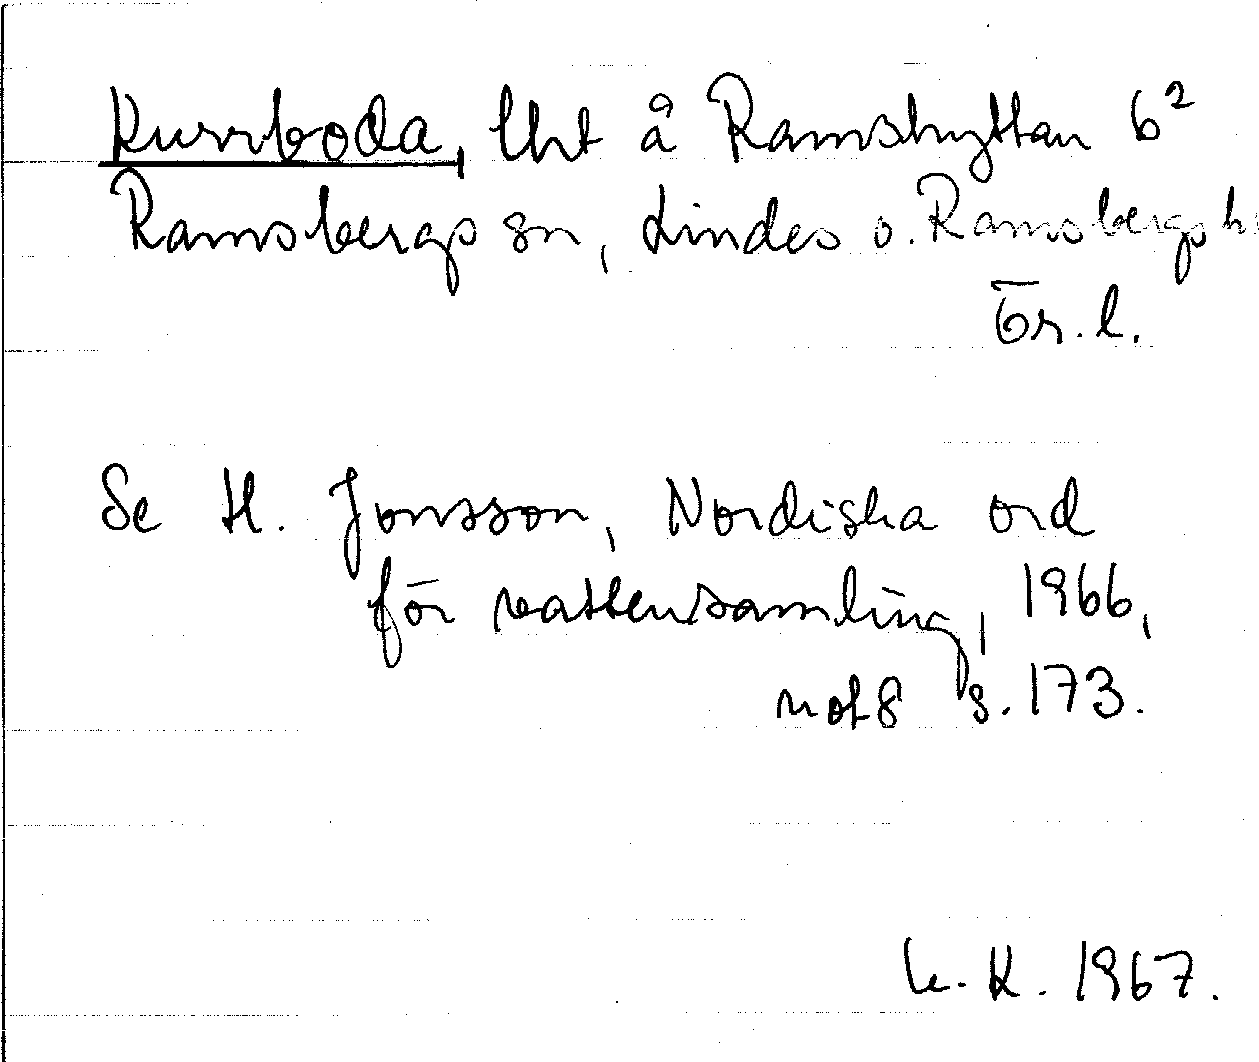 Kurrboda, lht å Ramshyttan 6²
Ramsbergs sn, Lindes o. Ramsbergs h
Ör. l.
Se H. Jonsson, Nordiska ord
för vattensamling, 1966,
not 8 s. 173.
K. 1967.